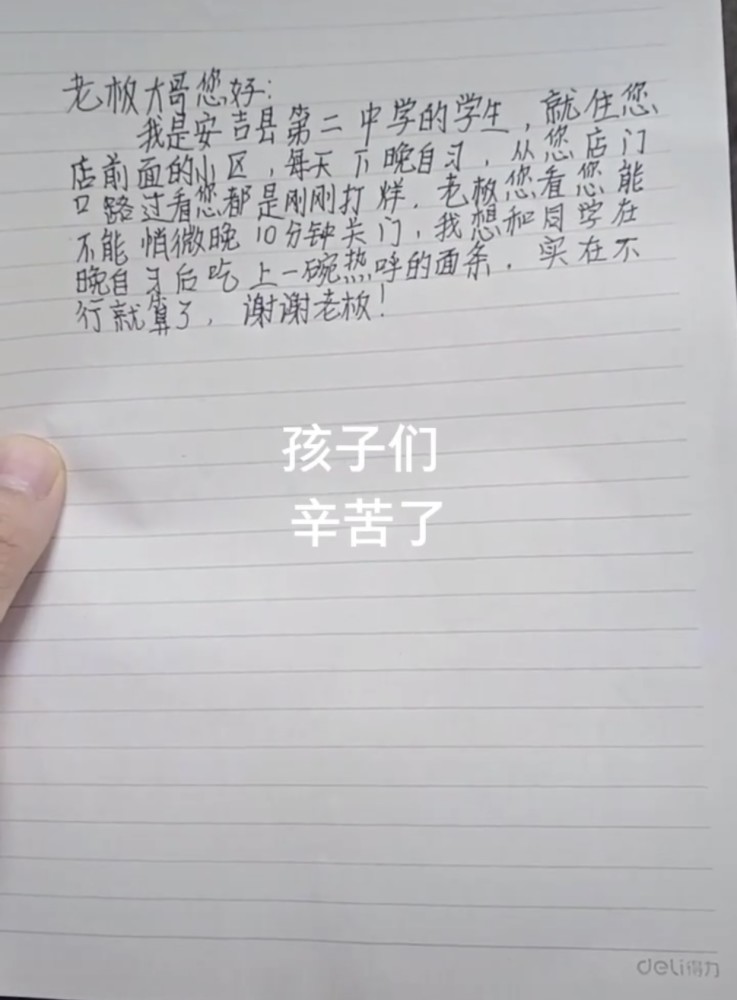 老板大哥您好：
我是安吉县第二中学的学生，就住您
店前面的小区，每天下晚自习，从您店门
口路过看您都是刚刚打烊．老板您看您能
不能悄微晚10分钟关门，我想和同学在
晚自习后吃上一碗热呼的面条．实在不
行就算了，谢谢老板！
孩子们
辛苦了
deli得力